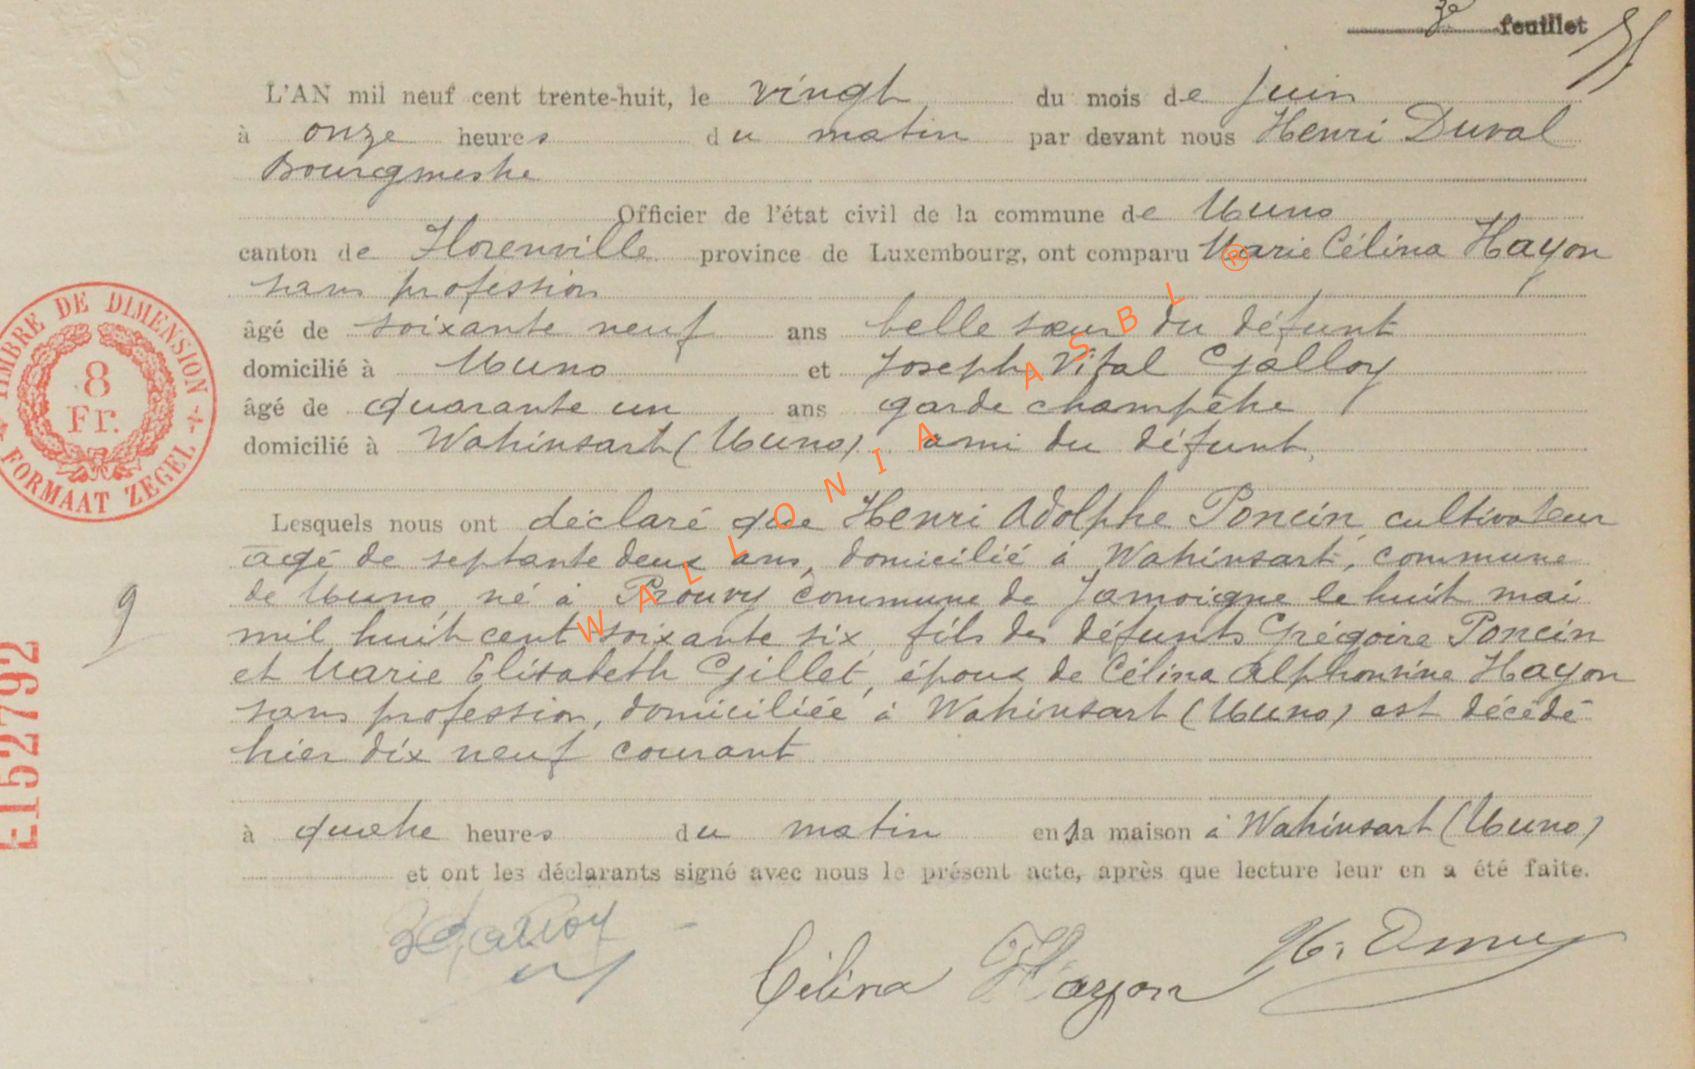 3e feuillet
L'AN mil neuf cent trente-huit, le vingt du mois de juin
à onze heures du matin par devant nous Henri Duval
Bourgmestre
Officier de l'état civil de la commune de Muno
canton de Florenville province de Luxembourg, ont comparu Marie Célina Hayon
sans profession
âgé de soixante neuf ans belle sœur du défunt
domicilié à Muno et Joseph Vital Galloy
âgé de quarante un ans garde champêtre
domicilié à Wahinsart (Muno) ami du défunt,
Lesquels nous ont déclaré que Henri Adolphe Poncin, cultivateur
agé de septante deux ans, domicilié à Wahinsart, commune
de Muno, né à Prouvy commune de Jamoigne le huit mai
mil huit cent soixante six, fils des défunts Grégoire Poncin
et Marie Elisabeth Gillet, époux de Célina Alphonsine Hayon
sans profession, domiciliée à Wahinsart (Muno) est décédé
hier dix neuf courant
à quatre heures du matin en sa maison à Wahinsart (Muno)
et ont les déclarants signé avec nous le présent acte, après que lecture leur en a été faite.
Célina Hayon
9
TIMBRE DE DIMENSION
8
Fr.
FORMAAT ZEGEL
E152792
WALLONIA ASBL ®